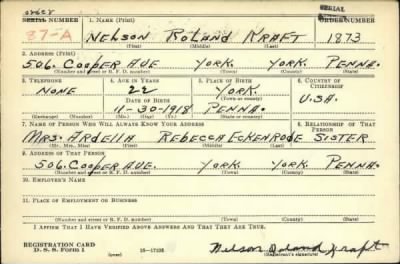 SERIAL NUMBER 1. NAME (Print) ORDER NUMBER
87-A NELSON ROLAND KRAFT 1873
(First) (Middle) (Last)
2. ADDRESS (Print)
506. COOPER AVE YORK. YORK. PENNA.
(Number and street or R. F. D. number) (Town) (County) (State)
3. TELEPHONE 4. AGE IN YEARS 5. PLACE OF BIRTH 6. COUNTRY OF CITIZENSHIP
NONE 22 YORK.
DATE OF BIRTH (Town or county) U.S.A.
11-30-1918 PENNA.
(Exchange) (Number) (Mo.) (Day) (Yr.) (State or country)
7. NAME OF PERSON WHO WILL ALWAYS KNOW YOUR ADDRESS 8. RELATIONSHIP OF THAT PERSON
MRS. ARDELLA REBECCA ECKENRODE SISTER
(Mr., Mrs., Miss) (First) (Middle) (Last)
9. ADDRESS OF THAT PERSON
506. COOPER AVE. YORK YORK PENNA.
(Number and street or R. F. D. number) (Town) (County) (State)
10. EMPLOYER'S NAME
11. PLACE OF EMPLOYMENT OR BUSINESS
(Number and street or R. F. D. number) (Town) (County) (State)
I AFFIRM THAT I HAVE VERIFIED ABOVE ANSWERS AND THAT THEY ARE TRUE.
REGISTRATION CARD
D. S. S. Form 1 (over) Nelson Roland Kraft
(Registrant's signature)